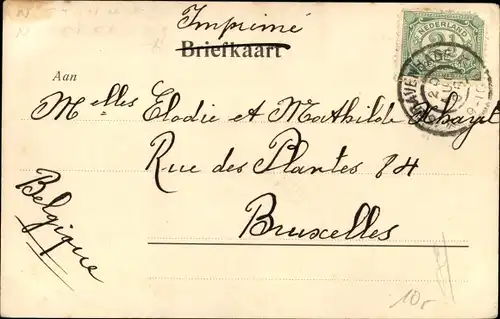 Imprimé
Briefkaart
NEDERLAND
2½
Aan
Melles Elodie et Mathilde
Rue des Plantes 84
Bruxelles
Belgique
10,-